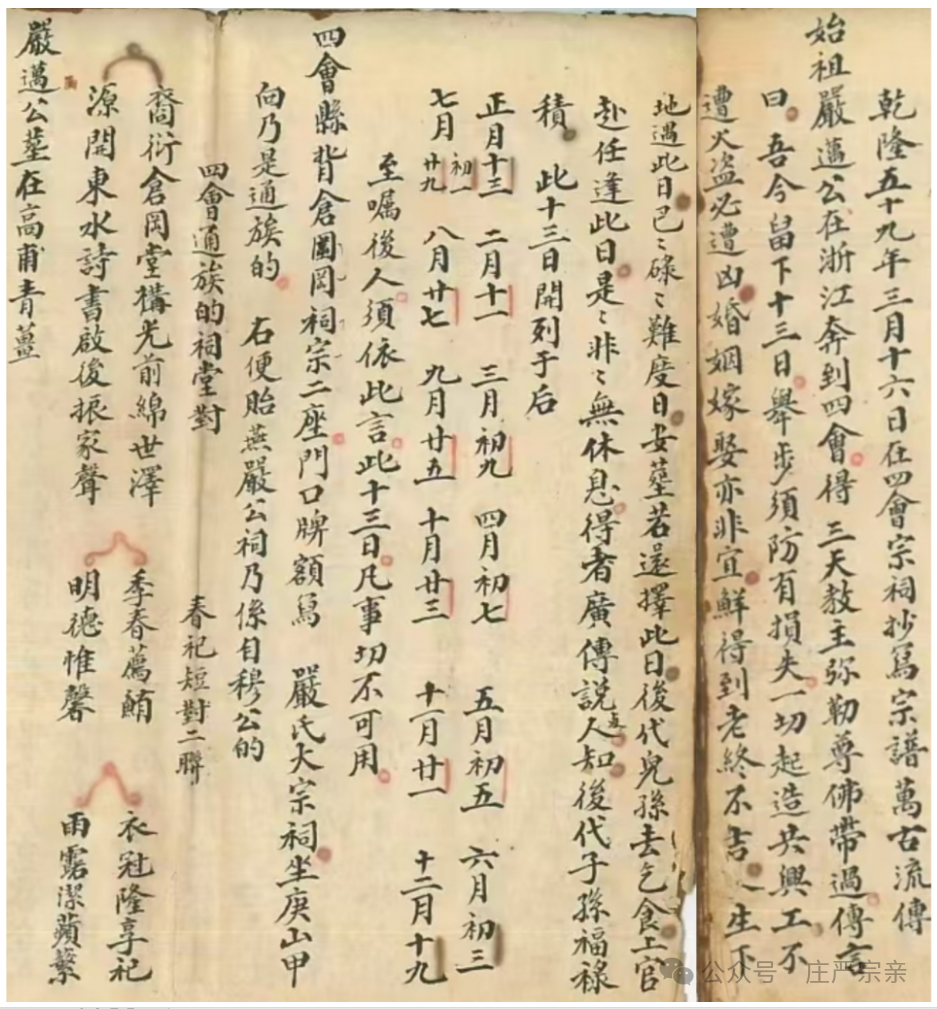 乾隆五十九年三月十六日在四會宗祠抄寫宗譜萬古流傳
始祖嚴邁公在浙江奔到四會得三天教主弥勒尊佛帶過傳言
曰吾今畄下十三日舉步須防有損失一切起造共興工不
遭火盜必遭凶婚姻嫁娶亦非宜鮮得到老終不吉一生下
地遇此日巴〻碌〻難度日安塟若还擇此日後代兒孫去乞食上官
赴任逢此日是〻非〻無休息得者廣傳説人知後代子孫福祿
積 此十三日開列于后
正月十三 二月十一 三月初九 四月初七 五月初五 六月初三
七月初一廿九 八月廿七 九月廿五 十月廿三 十一月廿一 十二月十九
至嘱後人須依此言此十三日凡事切不可用
四會縣背倉圍岡祠宗二座門口牌額寫 嚴氏大宗祠坐庚山甲
向乃是通族的 右便貽燕嚴公祠乃係日穆公的
四會通族的祠堂對 春祀短對二聯
裔衍倉岡堂構光前綿世澤 季春薦鮪 衣冠隆享祀
源開東水詩書啟後振家聲 明德惟馨 雨露潔蘋蘩
嚴邁公塟在高甫青薑
公众号 · 庄严宗亲